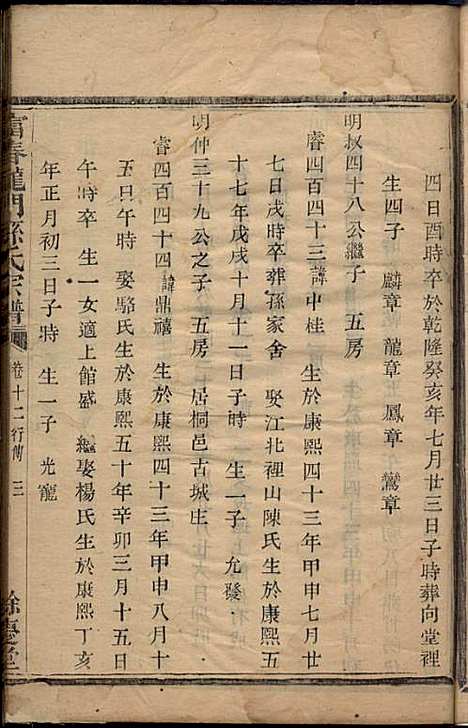 四日酉時卒於乾隆癸亥年七月廿三日子時葬向堂裡
生四子 麟章 龍章 鳳章 鸞章
明叔四十八公繼子 五房
睿四百四十三諱中桂 生於康熙四十三年甲申七月廿
七日戌時卒葬孫家舍 娶江北裡山陳氏生於康熙五
十七年戊戌十月十一日子時 生一子 允發
明仲三十九公之子 五房 居桐邑古城庄
睿四百四十四諱鼎禧 生於康熙四十三年甲申八月十
五日午時 娶駱氏生於康熙五十年辛卯三月十五日
午時卒 生一女適上館盛 繼娶楊氏生於康熙丁亥
年正月初三日子時 生一子 光寵
富春龍門孫氏宗譜 卷十二行傳 三 餘慶堂